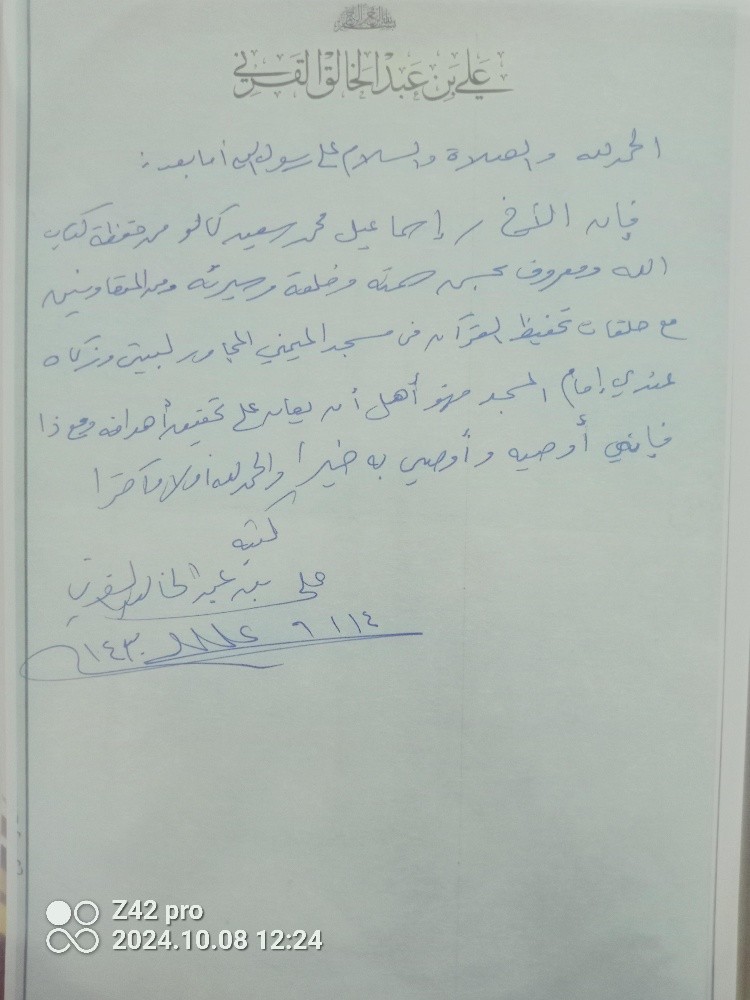 علي بن عبد الخالق القرني
الحمد لله والصلاة والسلام على رسول الله أما بعد :
فإن الأخ / إسماعيل محمد سعيد كالو من حفظة كتاب
الله ومعروف بحسن سمته وخلقه وسيرته ومن المتعاونين
مع حلقات تحفيظ القرآن في مسجد الميمني المجاور لبيتي وزكاه
عندي إمام المسجد فهو أهل أن يعان على تحقيق أهدافه ومع ذا
فإنني أوصيه وأوصي به خيرا والحمد لله أولا وآخرا
كتبه
علي بن عبد الخالق القرني
Z42 pro
2024.10.08 12:24